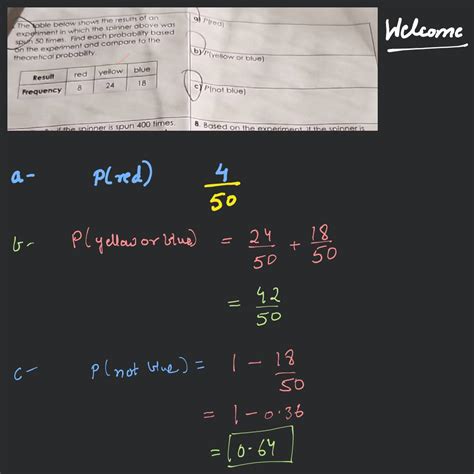 Welcome
The table below shows the results of an
experiment in which the spinner above was
spun 50 times. Find each probability based
on the experiment and compare to the
theoretical probability.
Result red yellow blue
Frequency 8 24 18
a) P(red)
b) P(yellow or blue)
c) P(not blue)
if the spinner is spun 400 times
8. Based on the experiment, if the spinner is
a- P(red) 4/50
b- P(yellow or blue) = 24/50 + 18/50
= 42/50
c- P(not blue) = 1 - 18/50
= 1 - 0.36
= 0.64